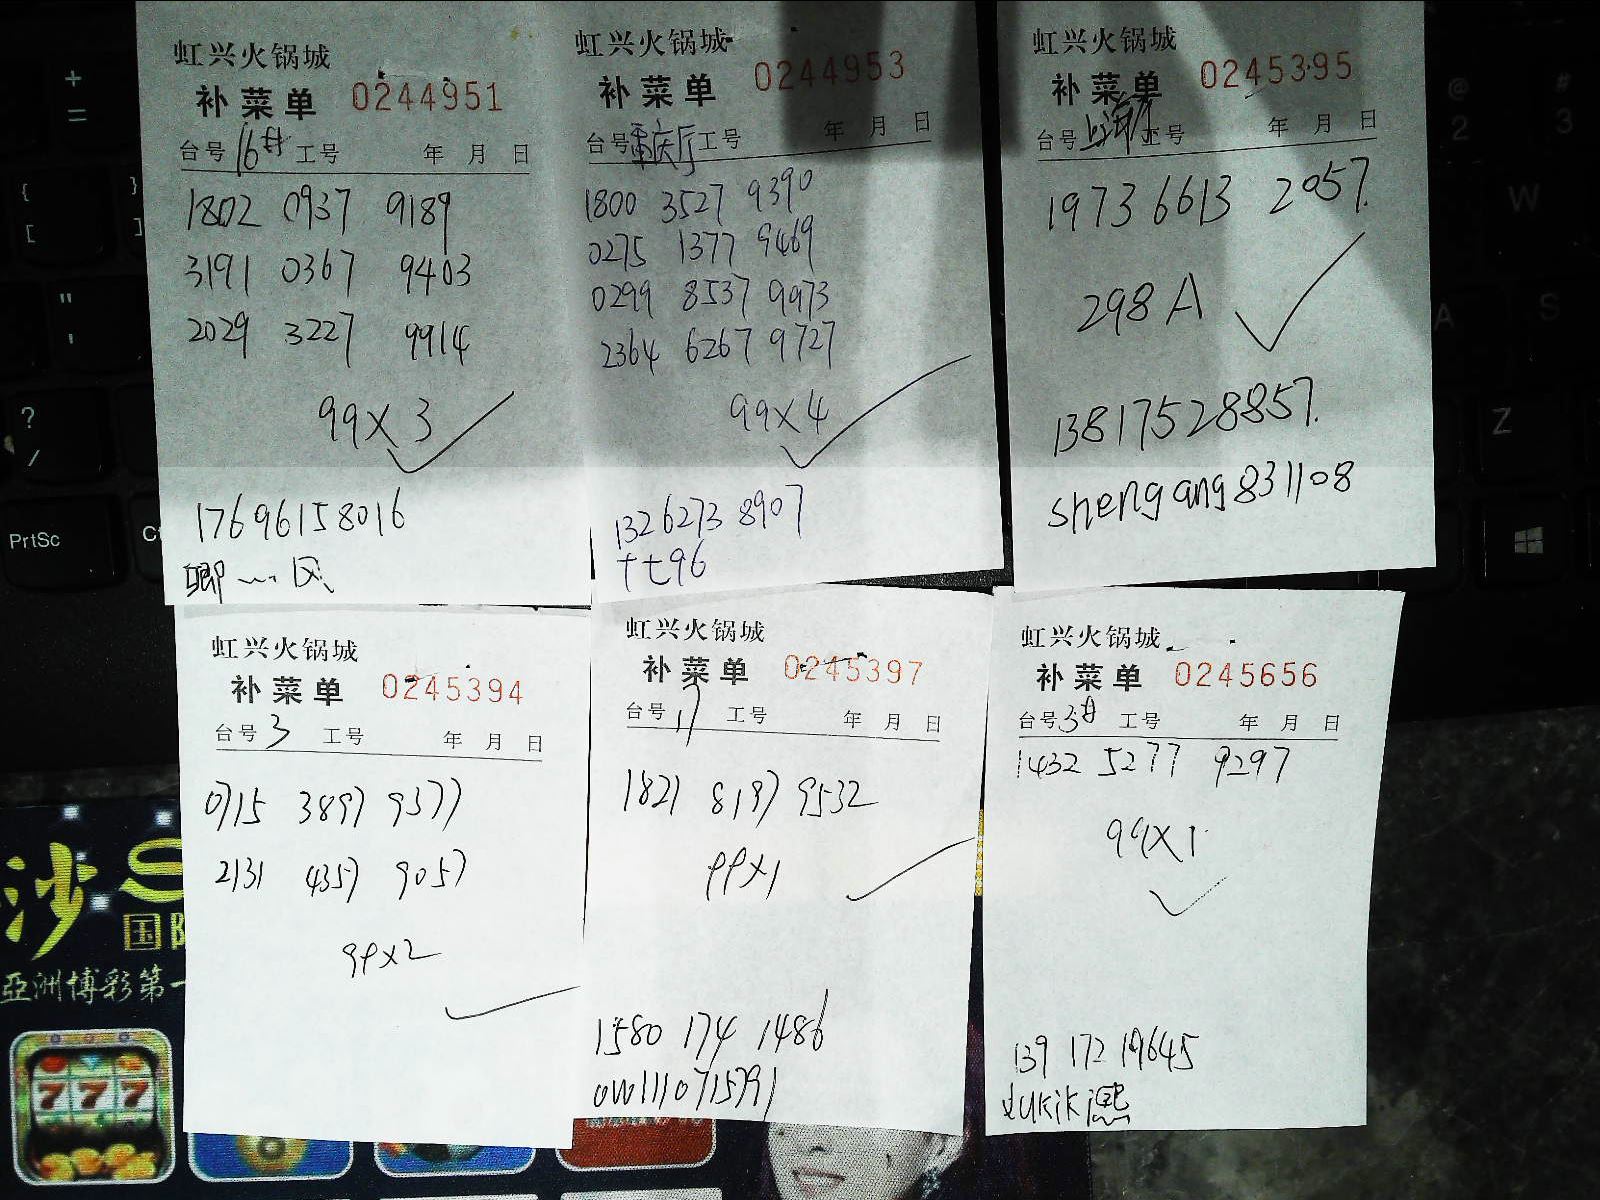 虹兴火锅城
补菜单 0244951
台号 16# 工号 年 月 日
1802 0937 9189
3191 0367 9403
2029 3227 9914
99X3
17696158016
聊一风
虹兴火锅城
补菜单 0244953
台号 重庆厅 工号 年 月 日
1800 3527 9390
0275 1377 9469
0299 8537 9973
2364 6267 9727
99X4
132 6273 8907
十七96
虹兴火锅城
补菜单 0245395
台号 上海厅 工号 年 月 日
1973 6613 2057.
298A
13817528857.
shengang831108
虹兴火锅城
补菜单 0245394
台号 3 工号 年 月 日
0715 3897 9377
2131 4357 9057
99X2
虹兴火锅城
补菜单 0245397
台号 17 工号 年 月 日
1821 8197 9532
99X1
1580 174 1486
虹兴火锅城
补菜单 0245656
台号 3# 工号 年 月 日
1432 5277 9297
99X1
139 172 19645
yukik熙
+
=
{
[
}
]
"
'
?
/
PrtSc
@
2
#
3
W
A
S
Z
沙
S
国际
亞洲博彩第一
777